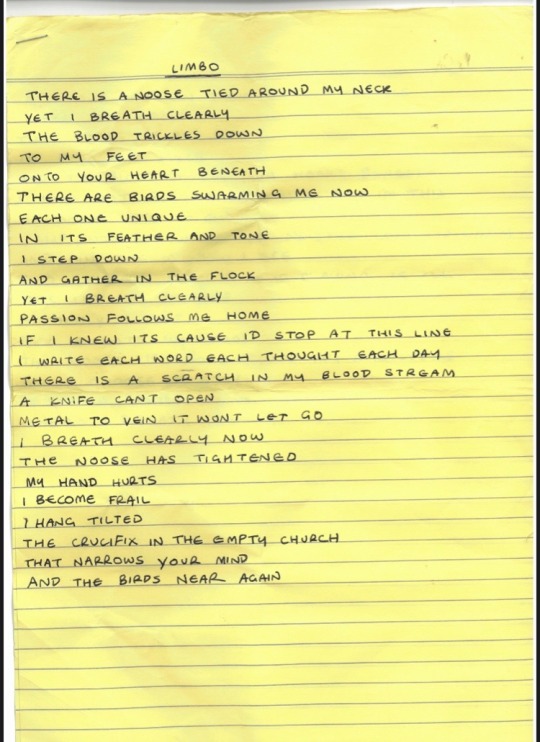 LIMBO
THERE IS A NOOSE TIED AROUND MY NECK
YET I BREATH CLEARLY
THE BLOOD TRICKLES DOWN
TO MY FEET
ONTO YOUR HEART BENEATH
THERE ARE BIRDS SWARMING ME NOW
EACH ONE UNIQUE
IN ITS FEATHER AND TONE
I STEP DOWN
AND GATHER IN THE FLOCK
YET I BREATH CLEARLY
PASSION FOLLOWS ME HOME
IF I KNEW ITS CAUSE ID STOP AT THIS LINE
I WRITE EACH WORD EACH THOUGHT EACH DAY
THERE IS A SCRATCH IN MY BLOOD STREAM
A KNIFE CANT OPEN
METAL TO VEIN IT WONT LET GO
I BREATH CLEARLY NOW
THE NOOSE HAS TIGHTENED
MY HAND HURTS
I BECOME FRAIL
I HANG TILTED
THE CRUCIFIX IN THE EMPTY CHURCH
THAT NARROWS YOUR MIND
AND THE BIRDS NEAR AGAIN